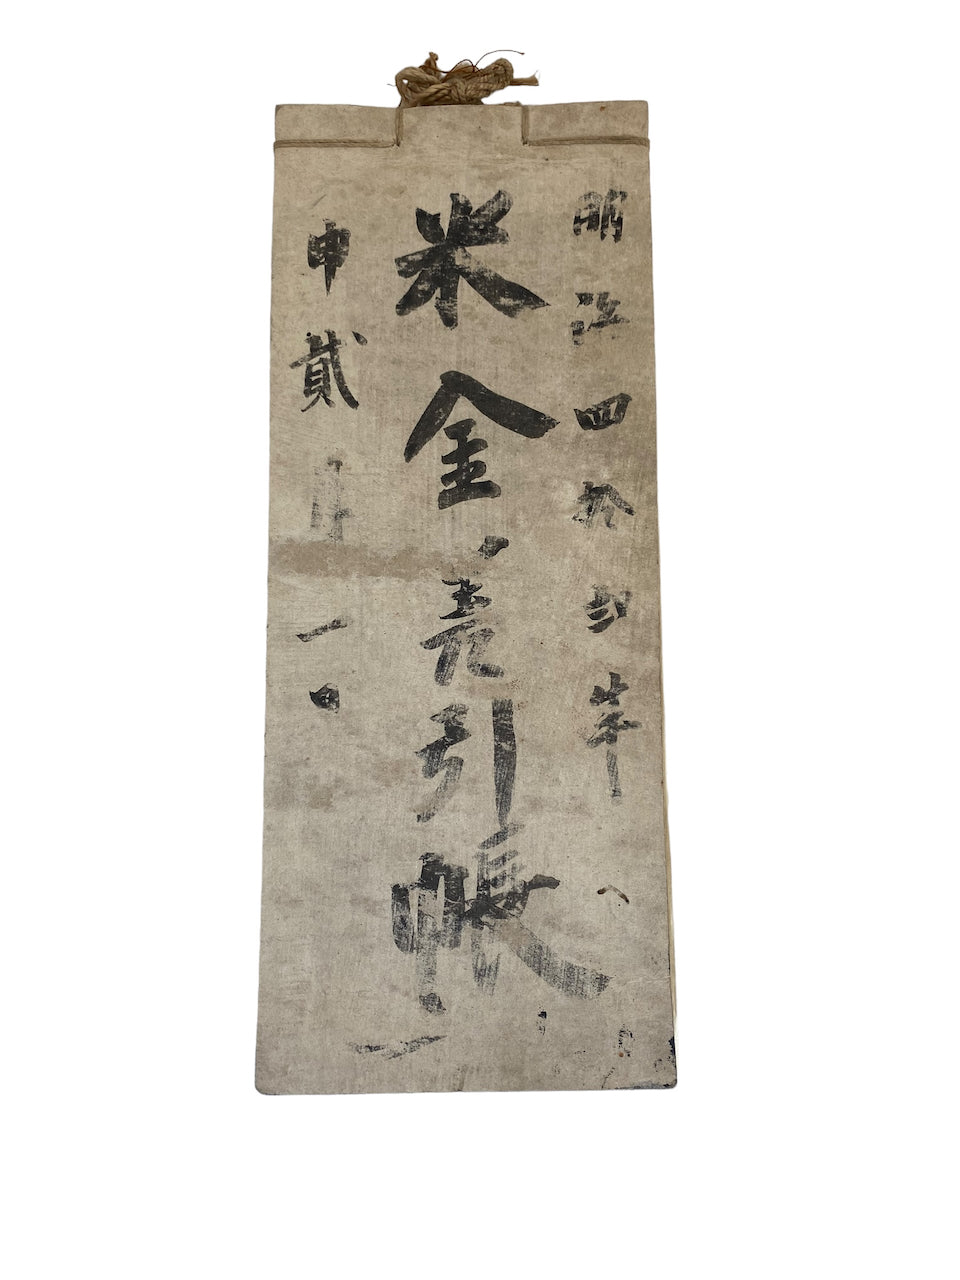 明治四拾年
米金差引帳
申貳月一日